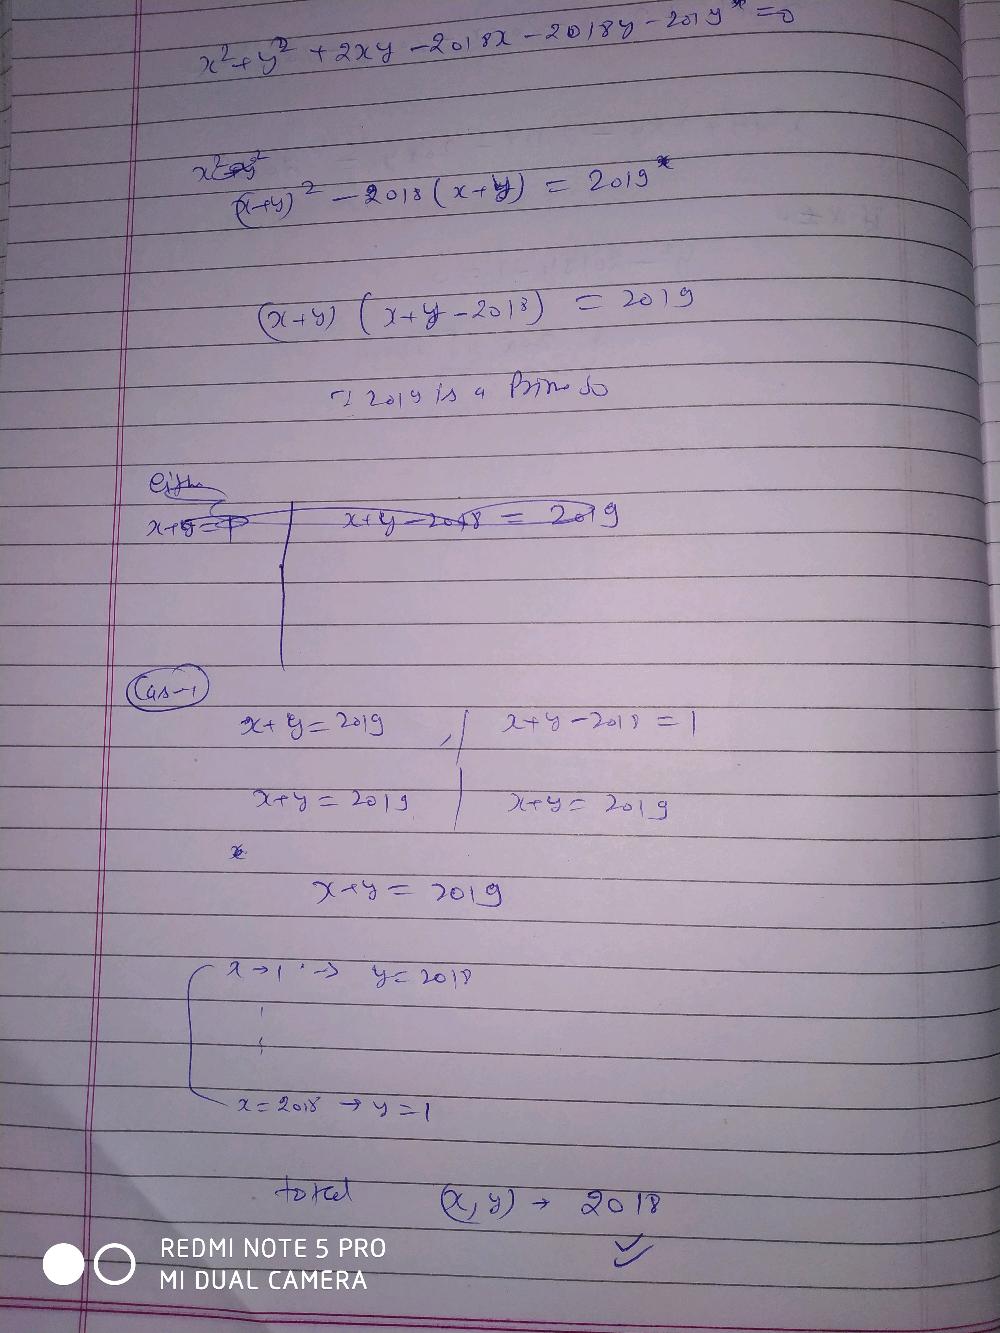 x²+y² + 2xy - 2018x - 2018y - 2019 = 0
(x+y)² - 2018(x+y) = 2019
(x+y) (x+y-2018) = 2019
2019 is a Prime so
x+y=1 | x+y-2018 = 2019
Cas-1
x+y=2019 , | x+y-2018 = 1
x+y = 2019 | x+y = 2019
x
x+y = 2019
x→1 → y=2018
x=2018 → y=1
total (x,y) → 2018
REDMI NOTE 5 PRO
MI DUAL CAMERA